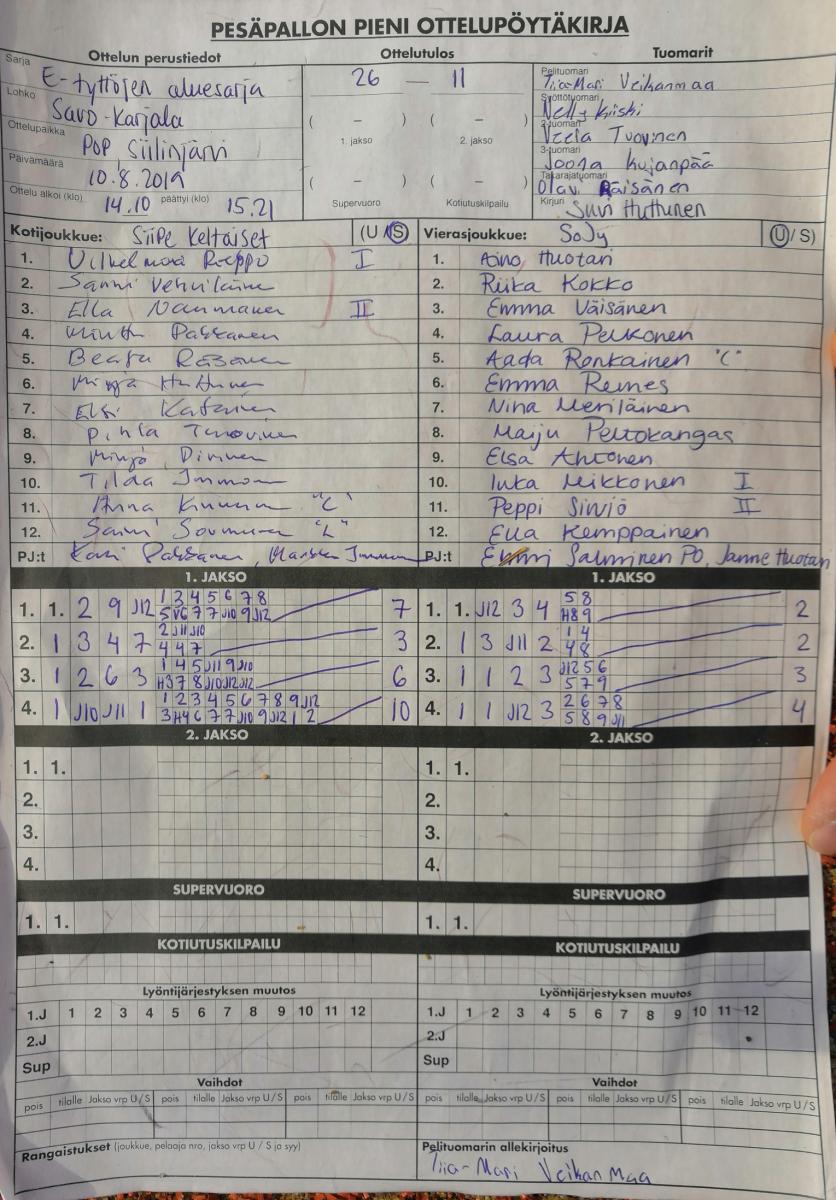 PESÄPALLON PIENI OTTELUPÖYTÄKIRJA
Ottelun perustiedot Ottelutulos Tuomarit
Sarja E-tyttöjen aluesarja 26 — 11 Pelituomari Tiia-Mari Veikanmaa
Lohko Savo-Karjala Syöttötuomari Nelly Kiiski
( – ) ( – ) 2-tuomari Veela Tuovinen
Ottelupaikka POP Siilinjärvi 1. jakso 2. jakso 3-tuomari Joona Kujanpää
Päivämäärä 10.8.2019 ( – ) ( – ) Takarajatuomari Olavi Räisänen
Ottelu alkoi (klo) 14.10 päättyi (klo) 15.21 Supervuoro Kotiutuskilpailu Kirjuri Suvi Huttunen
Kotijoukkue: SiiPe Keltaiset (U / S) Vierasjoukkue: SoJy (U / S)
1. Vilhelmiina Reppo I 1. Aino Huotari
2. Sanni Vehviläinen 2. Riika Kokko
3. Ella Nenonen II 3. Emma Väisänen
4. Minttu Pakkanen 4. Laura Pelkonen
5. Beata Räsänen 5. Aada Ronkainen "C"
6. Minja Huttunen 6. Emma Reines
7. Elsi 7. Nina Meriläinen
8. Pihla Tuovinen 8. Maiju Peltokangas
9. 9. Elsa Ahtonen
10. Tilda Immonen 10. Inka Mikkonen I
11. Anna "C" 11. Peppi Sirviö II
12. Saimi "L" 12. Ella Kemppainen
PJ:t Kati Pakkanen, Immonen PJ:t Emmi Salminen PO, Janne Huotari
1. JAKSO 1. JAKSO
1 3 4 5 6 7 8 5 8
1. 1. 2 9 J12 5 V6 7 7 J10 9 J12 7 1. 1. J12 3 4 H8 9 2
2 J11 J10 1 4
2. 1 3 4 7 4 4 7 3 2. 1 3 J11 2 4 8 2
1 4 5 J11 9 J10 J12 5 6
3. 1 2 6 3 H3 7 8 J10 J12 J12 6 3. 1 1 2 3 5 7 9 3
1 2 3 4 5 6 7 8 9 J12 2 6 7 8
4. 1 J10 J11 1 3 H4 6 7 7 J10 9 J12 1 2 10 4. 1 1 J12 3 5 8 9 J11 4
2. JAKSO 2. JAKSO
1. 1. 1. 1.
2. 2.
3. 3.
4. 4.
SUPERVUORO SUPERVUORO
1. 1. 1. 1.
KOTIUTUSKILPAILU KOTIUTUSKILPAILU
Lyöntijärjestyksen muutos Lyöntijärjestyksen muutos
1.J 1 2 3 4 5 6 7 8 9 10 11 12 1.J 1 2 3 4 5 6 7 8 9 10 11 12
2.J 2.J
Sup Sup
Vaihdot Vaihdot
pois tilalle Jakso vrp U / S pois tilalle Jakso vrp U / S pois tilalle Jakso vrp U / S pois tilalle Jakso vrp U / S pois tilalle Jakso vrp U / S pois tilalle Jakso vrp U / S
Rangaistukset (joukkue, pelaaja nro, jakso vrp U / S ja syy) Pelituomarin allekirjoitus
Tiia-Mari Veikanmaa